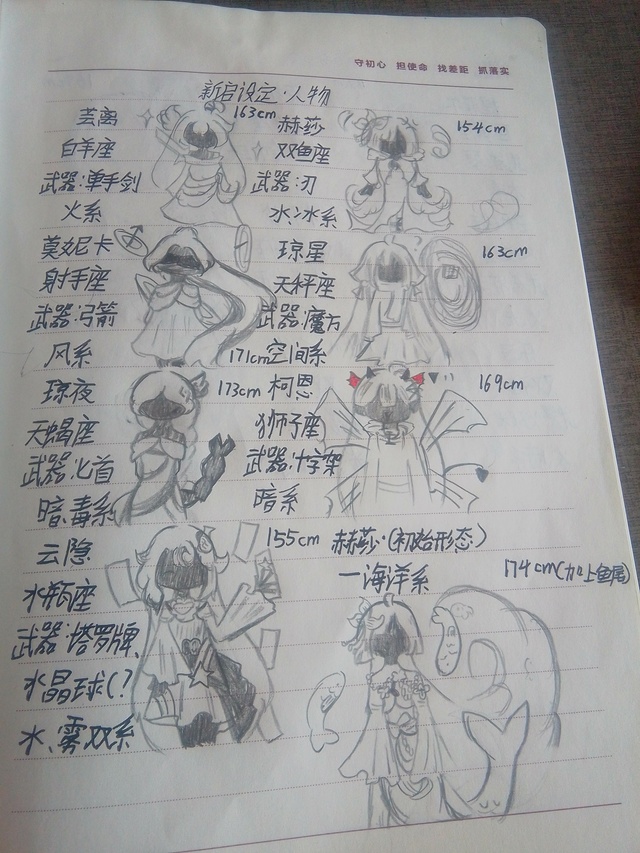 守初心 担使命 找差距 抓落实
新启设定·人物
芸离
163cm
白羊座
武器:单手剑
火系
赫莎
154cm
双鱼座
武器:刃
水、冰系
莫妮卡
射手座
武器:弓箭
风系
171cm
琼星
163cm
天秤座
武器:魔方
空间系
琼夜
173cm
天蝎座
武器:匕首
暗、毒系
柯恩
169cm
狮子座
武器:十字架
暗系
云隐
155cm
水瓶座
武器:塔罗牌、
水晶球(?
水、雾双系
赫莎·(初始形态)
—海洋系
174cm(加上鱼尾)